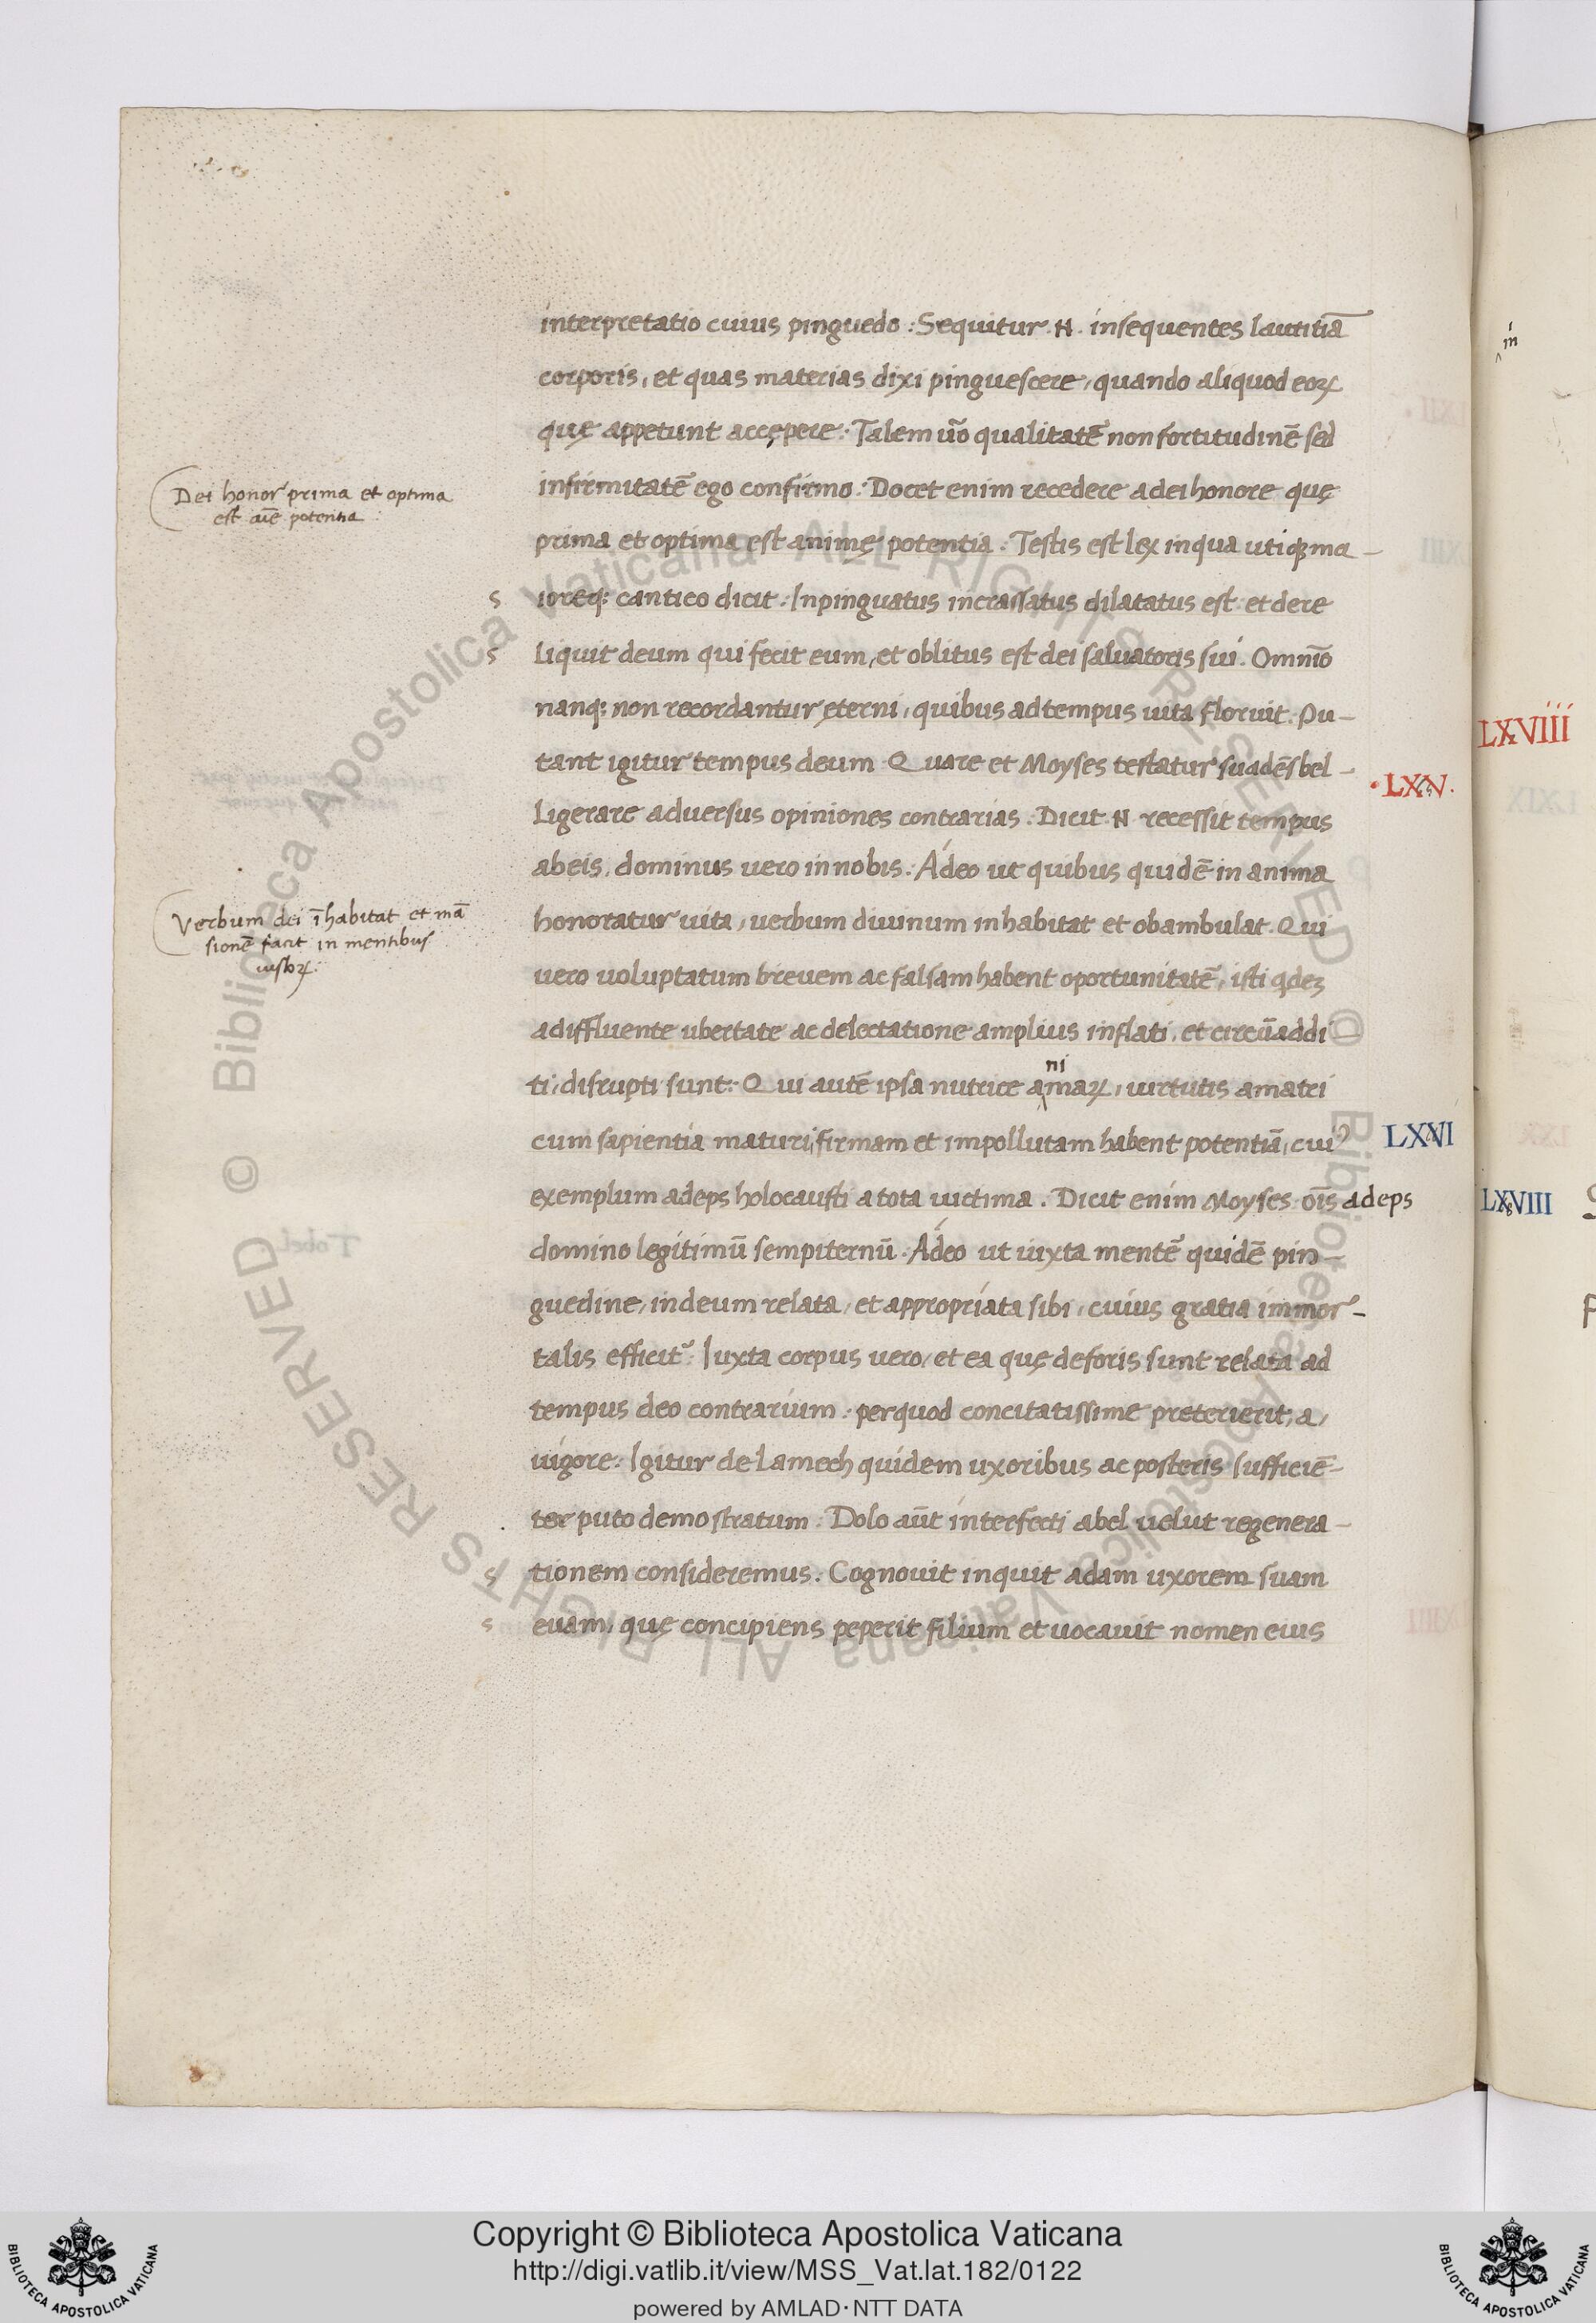 interpretatio cuius pinguedo : Sequitur .N. insequentes lautitiã
corporis, et quas materias dixi pinguescere, quando aliquod eoꝝ
quę appetunt accępere. Talem ũo qualitatẽ non fortitudinẽ sed
infirmitatẽ ego confirmo. Docet enim recedere a dei honore quę
Dei honor prima et optima
est aĩe potentia
prima et optima est animę potentia. Testis est lex in qua utiqꝫ ma-
s ioreqꝫ cantico dicit. Inpinguatus incrassatus dilatatus est et dere
s liquit deum qui fecit eum, et oblitus est dei saluatoris sui. Omnĩo
nanqꝫ non recordantur ęterni, quibus ad tempus uita floruit. Pu-
tant igitur tempus deum Quare et Moyses testatur suadẽs bel-
·LXXV·
ligerare adversus opiniones contrarias. Dicit .N. recessit tempus
ab eis, dominus vero in nobis. Adeo ut quibus quidẽ in anima
honoratur uita, uerbum divinum inhabitat et obambulat. Qui
Verbum dei ĩhabitat et mã
sionẽ facit in mentibus
iustoꝝ.
vero voluptatum brevem ac falsam habent oportunitatẽ, isti qdeꝫ
adiffluente ubertate ac delectatione amplius inflati, et circũaddi
ti, disrupti sunt. Qui autẽ ipsa nutrice amaꝝ, uirtutis amatri
ni
cum sapientia maturi, firmam et impollutam habent potentiã, cui⁹
LXXVI
exemplum adeps holocausti a tota uictima. Dicit enim Moyses oĩs adeps
domino legitimũ sempiternũ. Adeo ut iuxta mentẽ quidẽ pin-
guedine, in deum relata, et appropriata sibi, cuius gratia immor-
talis efficit᷑. Iuxta corpus vero, et ea quę deforis sunt relata ad
tempus deo contrarium. per quod concitatissime preterierit, a,
uigore. Igitur de Lamech quidem uxoribus ac posteris sufficiẽ-
ter puto demostratum. Dolo aũt interfecti abel velut regenera-
s tionem consideremus. Cognovit inquit adam uxorem suam
s euam, quę concipiens peperit filium et uocavit nomen eius
in
LXVIIII
LXVIII
Biblioteca Apostolica Vaticana ALL RIGHTS RESERVED ©
Biblioteca Apostolica Vaticana ALL RIGHTS RESERVED ©
Copyright © Biblioteca Apostolica Vaticana
http://digi.vatlib.it/view/MSS_Vat.lat.182/0122
powered by AMLAD·NTT DATA
BIBLIOTECA APOSTOLICA VATICANA
BIBLIOTECA APOSTOLICA VATICANA